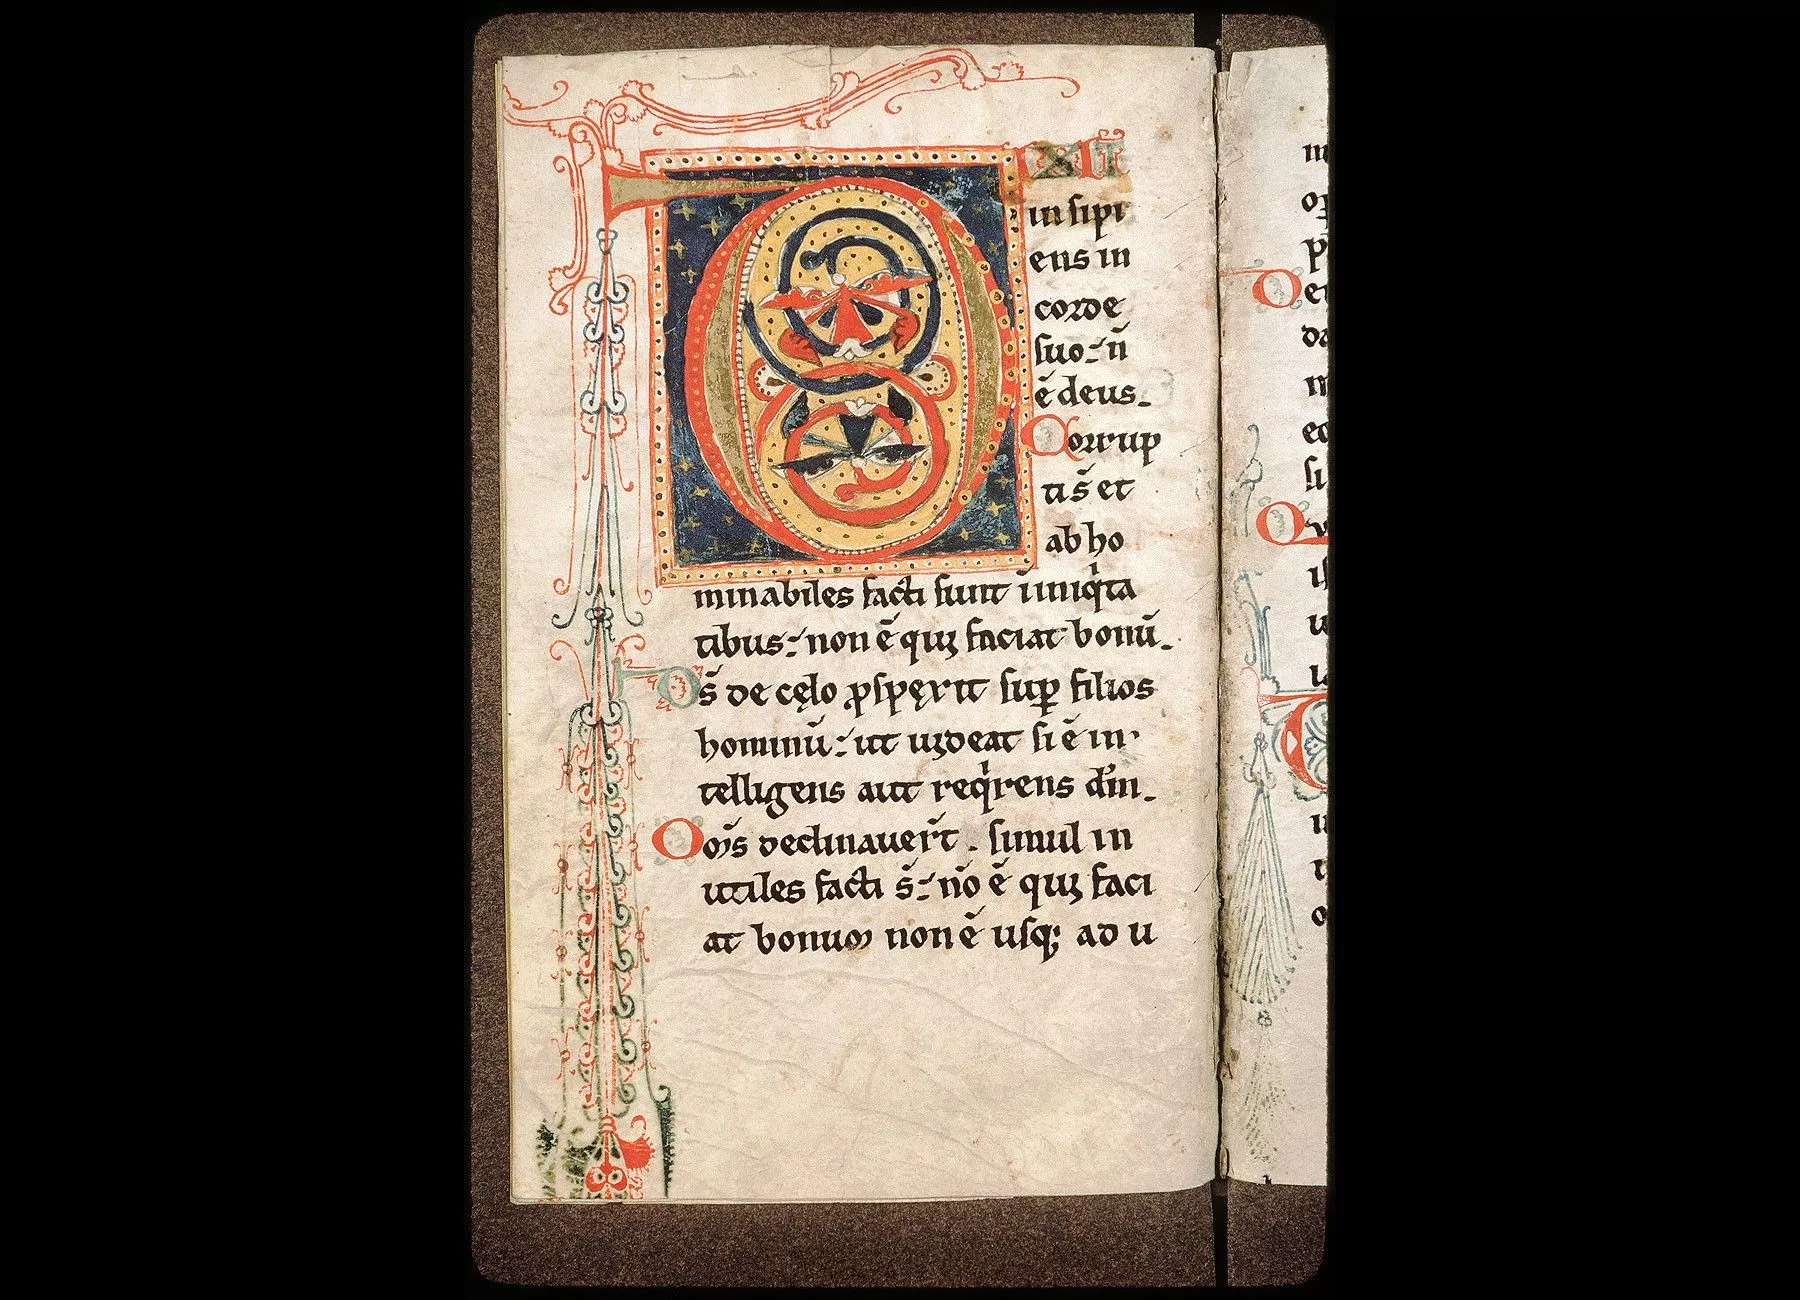 DIXIT
insipi
ens in
corde
suo: n̄
ē deus.
Corrup
ti s̄ et
abho
minabiles facti sunt ī iniq'ta
tibus: non ē qui faciat bonū.
D̄s de cęlo ꝓspęxit suꝑ filios
hominū: ut uideat si ē in
telligens aut req'rens dm̄.
Om̄s declinauer̄t. simul in
utiles facti s̄: nō ē qui faci
at bonum non ē usq; ad u